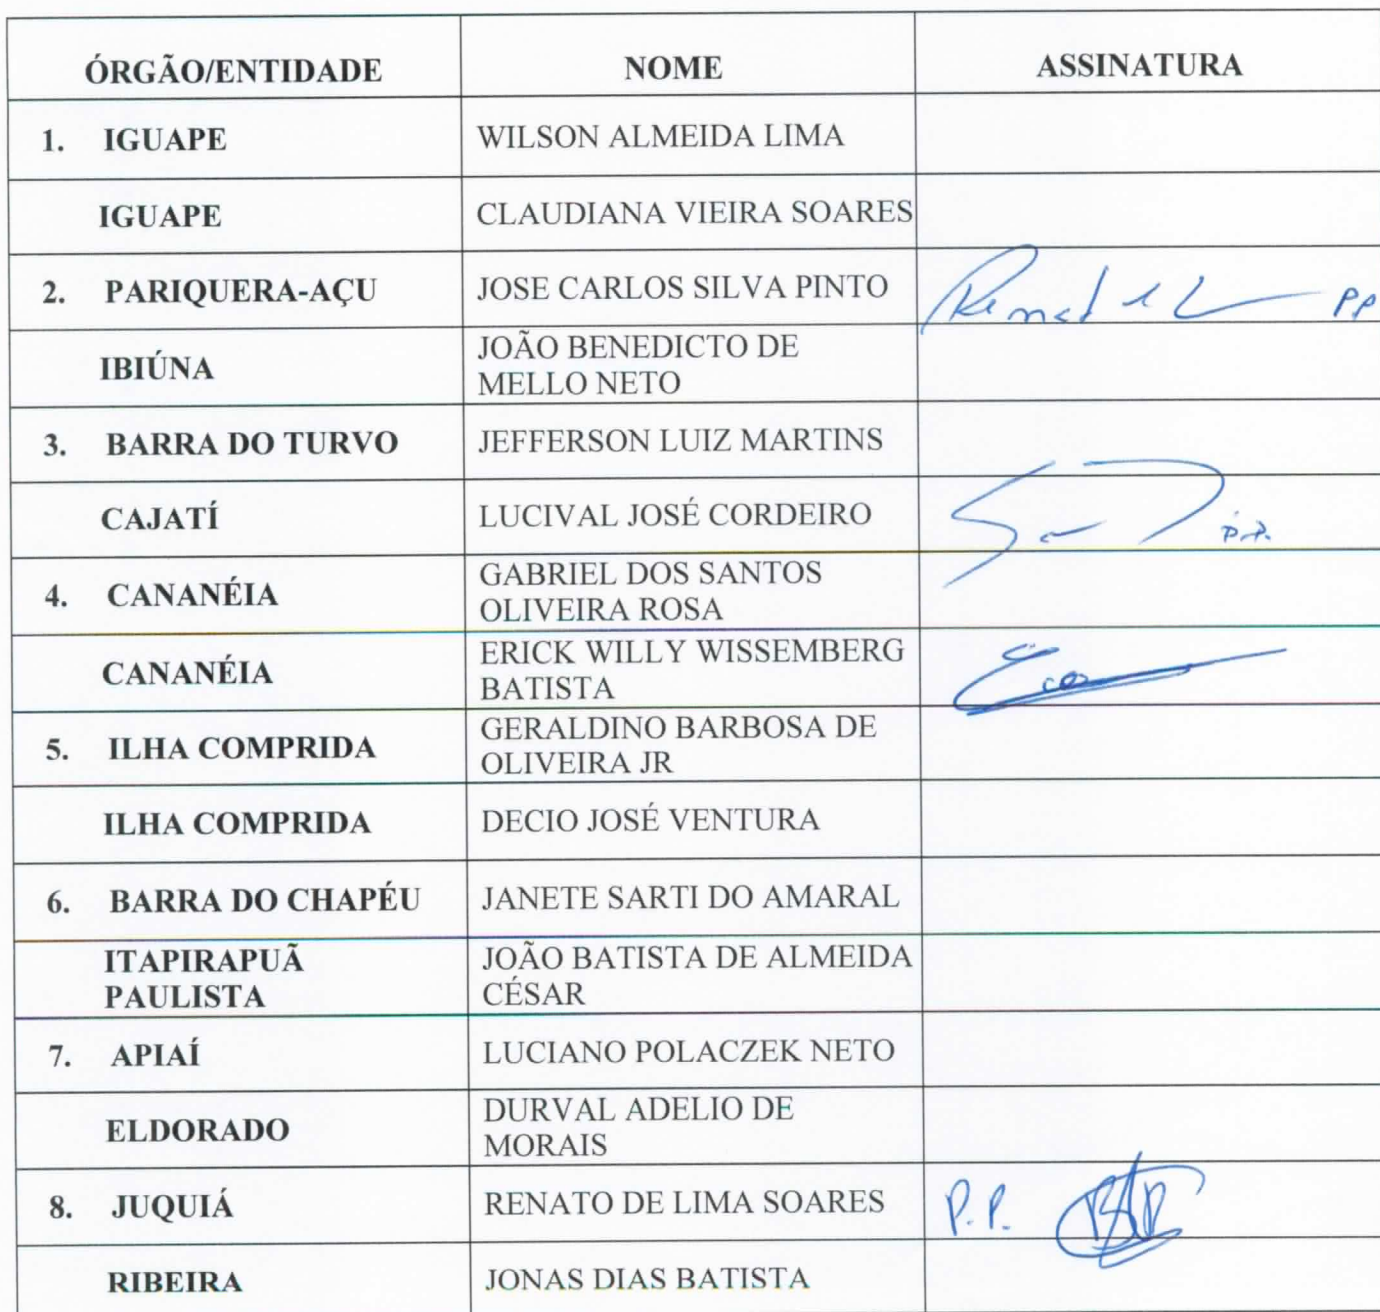 ÓRGÃO/ENTIDADE NOME ASSINATURA
1. IGUAPE WILSON ALMEIDA LIMA
IGUAPE CLAUDIANA VIEIRA SOARES
2. PARIQUERA-AÇU JOSE CARLOS SILVA PINTO P.P
IBIÚNA JOÃO BENEDICTO DE
MELLO NETO
3. BARRA DO TURVO JEFFERSON LUIZ MARTINS
CAJATÍ LUCIVAL JOSÉ CORDEIRO P.P.
4. CANANÉIA GABRIEL DOS SANTOS
OLIVEIRA ROSA
CANANÉIA ERICK WILLY WISSEMBERG
BATISTA
5. ILHA COMPRIDA GERALDINO BARBOSA DE
OLIVEIRA JR
ILHA COMPRIDA DECIO JOSÉ VENTURA
6. BARRA DO CHAPÉU JANETE SARTI DO AMARAL
ITAPIRAPUÃ
PAULISTA
JOÃO BATISTA DE ALMEIDA
CÉSAR
7. APIAÍ LUCIANO POLACZEK NETO
ELDORADO DURVAL ADELIO DE
MORAIS
8. JUQUIÁ RENATO DE LIMA SOARES P.P.
RIBEIRA JONAS DIAS BATISTA